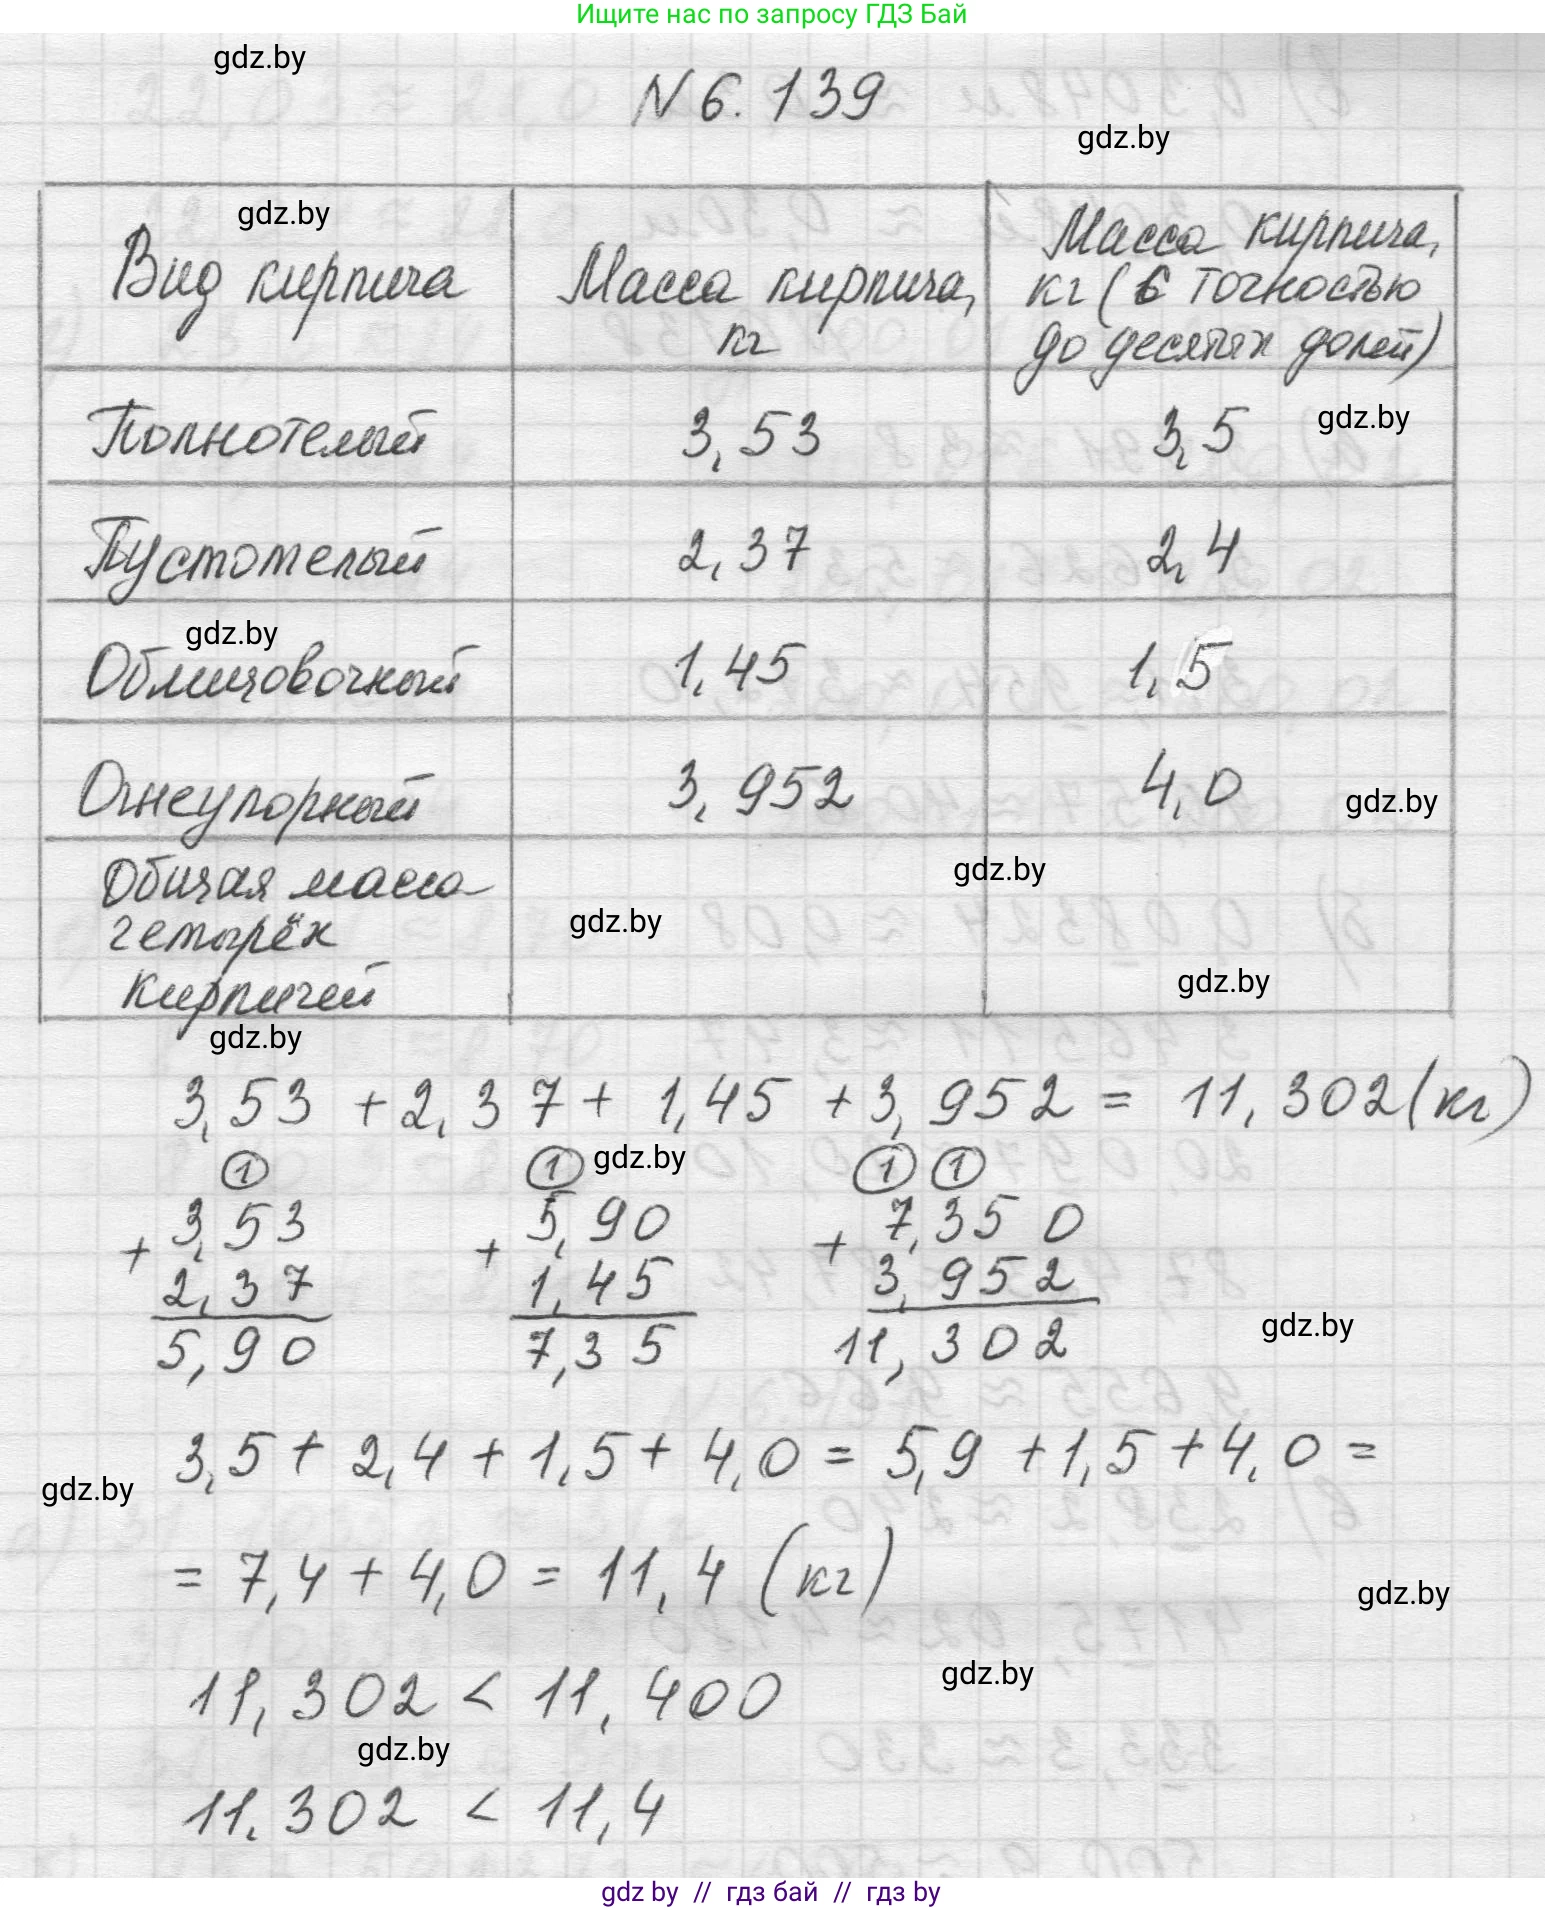 Ищите нас по запросу ГДЗ Бай
gdz.by
N 6.139
gdz.by
gdz.by
Вид кирпича
Масса кирпича, кг
Масса кирпича, кг (с точностью до десятых долей)
Полнотелый 3,53 3,5
gdz.by
Пустотелый 2,37 2,4
gdz.by
Облицовочный 1,45 1,5
Огнеупорный 3,952 4,0
gdz.by
Общая масса
четырёх
кирпичей
gdz.by
gdz.by
gdz.by
gdz.by
3,53 + 2,37 + 1,45 + 3,952 = 11,302 (кг)
gdz.by
1 1 1 1
+ 3,53 + 5,90 + 7,350
2,37 1,45 3,952
5,90 7,35 11,302
gdz.by
3,5 + 2,4 + 1,5 + 4,0 = 5,9 + 1,5 + 4,0 =
gdz.by
= 7,4 + 4,0 = 11,4 (кг)
gdz.by
11,302 < 11,400
gdz.by
gdz.by
11,302 < 11,4
gdz by // гдз бай // гдз by